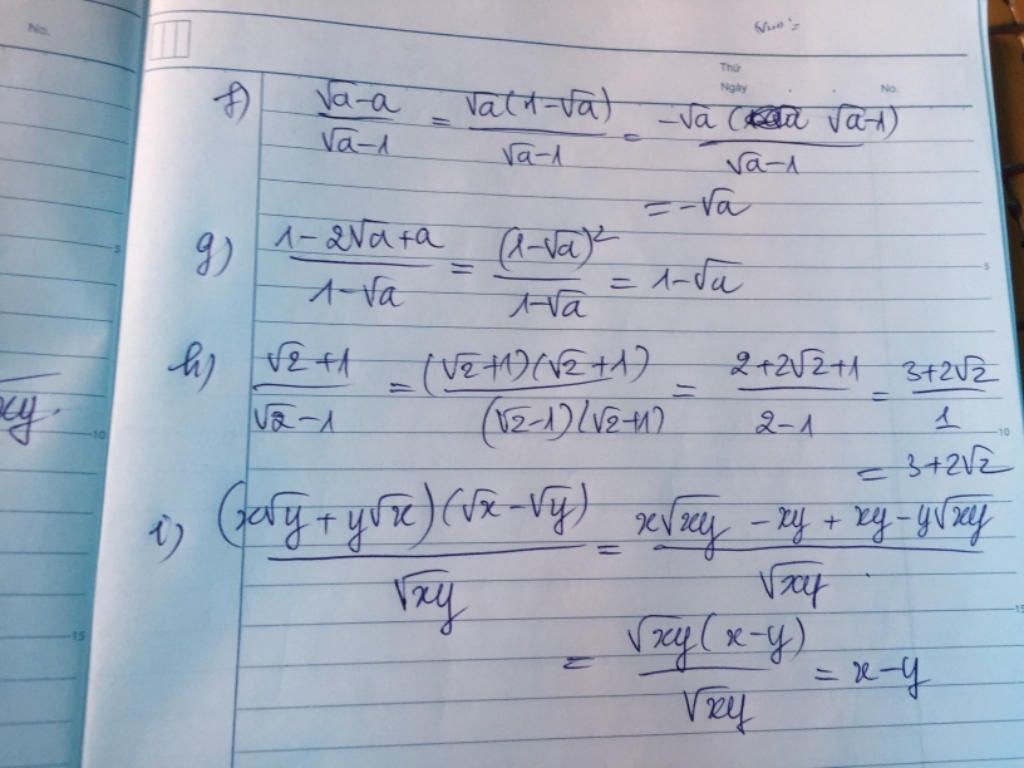 No.
Thứ
Ngày . . No.
f) (√a-a)/(√a-1) = √a(1-√a)/(√a-1) = -√a( √a-1)/(√a-1)
= -√a
g) (1-2√a+a)/(1-√a) = (1-√a)²/(1-√a) = 1-√a
5
5
h) (√2+1)/(√2-1) = (√2+1)(√2+1)/(√2-1)(√2+1) = (2+2√2+1)/(2-1) = (3+2√2)/1
xy.
10
10
= 3+2√2
i) (x√y + y√x)(√x-√y)/√xy = (x√xy - xy + xy - y√xy)/√xy
15
15
= √xy(x-y)/√xy = x-y